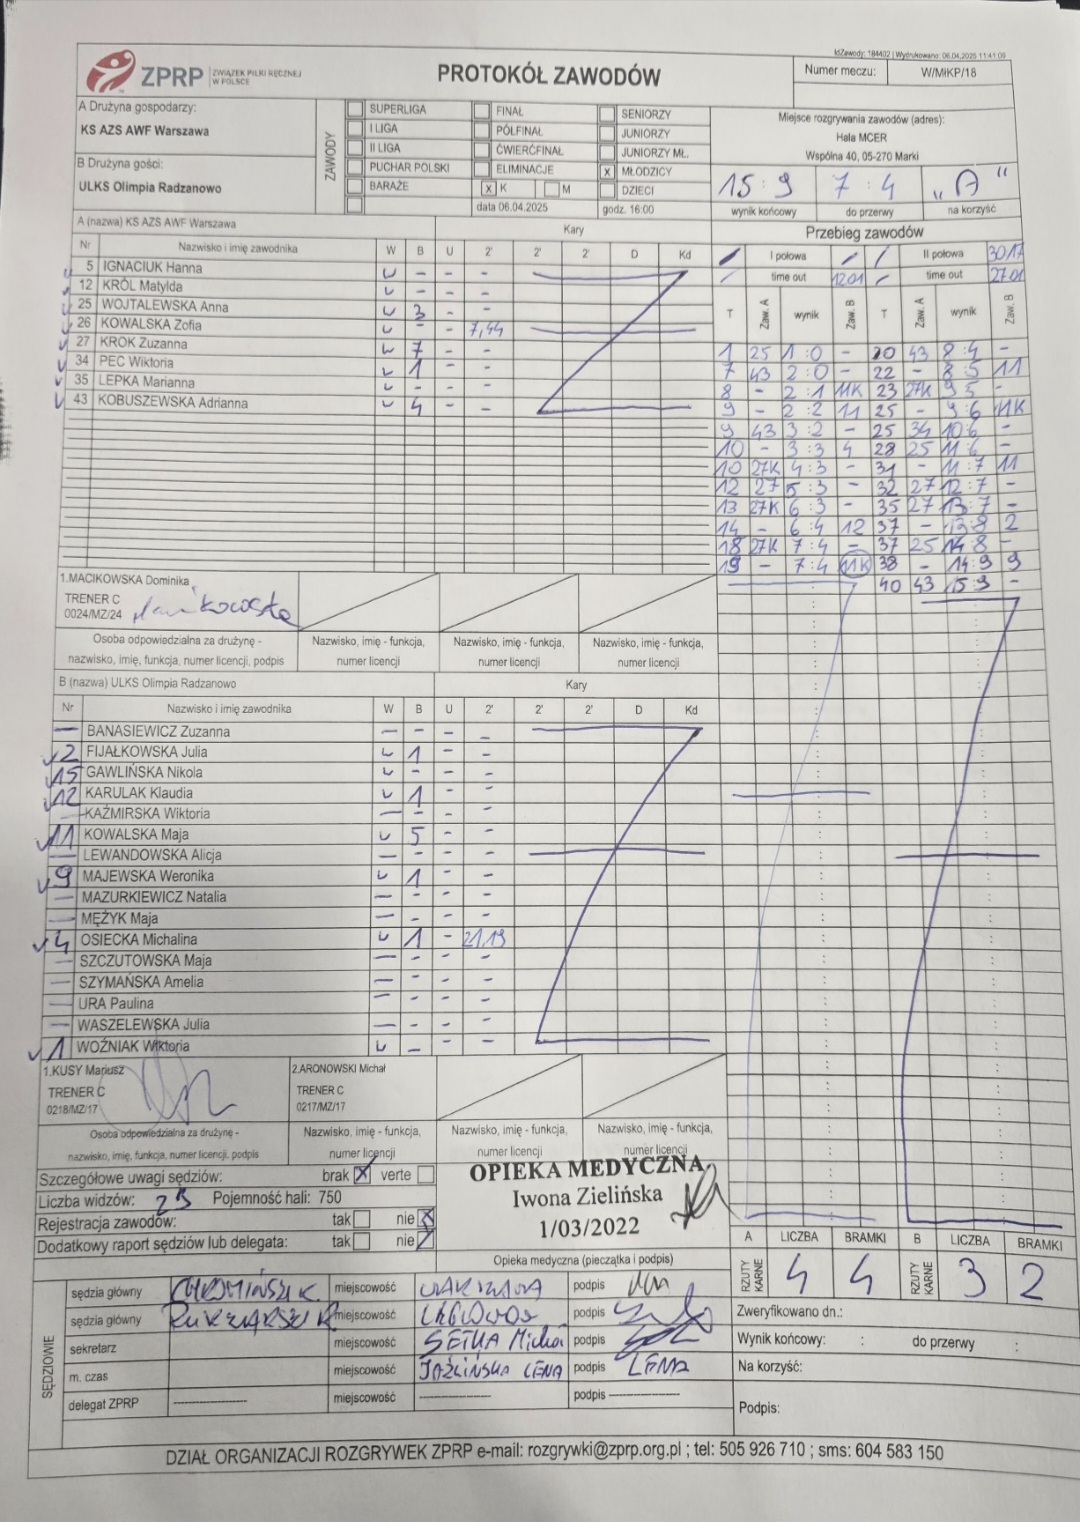 IdZawody: 184402 | Wydrukowano: 06.04.2025 11:41:09
ZPRP ZWIĄZEK PIŁKI RĘCZNEJ W POLSCE
PROTOKÓŁ ZAWODÓW
Numer meczu: W/MiKP/18
A Drużyna gospodarzy:
KS AZS AWF Warszawa
B Drużyna gości:
ULKS Olimpia Radzanowo
ZAWODY
SUPERLIGA FINAŁ SENIORZY
I LIGA PÓŁFINAŁ JUNIORZY
II LIGA ĆWIERĆFINAŁ JUNIORZY MŁ.
PUCHAR POLSKI ELIMINACJE x MŁODZICY
BARAŻE x K M DZIECI
data 06.04.2025 godz. 16:00
Miejsce rozgrywania zawodów (adres):
Hala MCER
Wspólna 40, 05-270 Marki
15:9 7:4 „A"
wynik końcowy do przerwy na korzyść
A (nazwa) KS AZS AWF Warszawa Kary
Nr Nazwisko i imię zawodnika W B U 2' 2' 2' D Kd
5 IGNACIUK Hanna - - -
12 KRÓL Matylda - - -
25 WOJTALEWSKA Anna 3 - -
26 KOWALSKA Zofia - - 7,44
27 KROK Zuzanna 7 - -
34 PEC Wiktoria 1 - -
35 LEPKA Marianna - - -
43 KOBUSZEWSKA Adrianna 4 - -
Przebieg zawodów
I połowa II połowa 30:17
time out 12:01 time out 27:01
T Zaw. A wynik Zaw. B T Zaw. A wynik Zaw. B
1 25 1:0 - 20 43 8:4 -
7 43 2:0 - 22 - 8:5 11
8 - 2:1 11K 23 27K 9:5 -
9 - 2:2 11 25 - 9:6 11K
9 43 3:2 - 25 34 10:6 -
10 - 3:3 4 28 25 11:6 -
10 27K 4:3 - 31 - 11:7 11
12 27 5:3 - 32 27 12:7 -
13 27K 6:3 - 35 27 13:7 -
14 - 6:4 12 37 - 13:8 2
18 27K 7:4 - 37 25 14:8 -
19 - 7:4 11K 38 - 14:9 9
40 43 15:9 -
1.MACIKOWSKA Dominika
TRENER C
0024/MZ/24
Osoba odpowiedzialna za drużynę - Nazwisko, imię - funkcja, Nazwisko, imię - funkcja, Nazwisko, imię - funkcja,
nazwisko, imię, funkcja, numer licencji, podpis numer licencji numer licencji numer licencji
B (nazwa) ULKS Olimpia Radzanowo Kary
Nr Nazwisko i imię zawodnika W B U 2' 2' 2' D Kd
- BANASIEWICZ Zuzanna - - - -
2 FIJAŁKOWSKA Julia 1 - -
15 GAWLIŃSKA Nikola - - -
12 KARULAK Klaudia 1 - -
- KAŹMIRSKA Wiktoria - - - -
11 KOWALSKA Maja 5 - -
- LEWANDOWSKA Alicja - - - -
9 MAJEWSKA Weronika 1 - -
- MAZURKIEWICZ Natalia - - - -
- MĘŻYK Maja - - - -
4 OSIECKA Michalina 1 - 21,19
- SZCZUTOWSKA Maja - - - -
- SZYMAŃSKA Amelia - - - -
- URA Paulina - - - -
- WASZELEWSKA Julia - - - -
1 WOŹNIAK Wiktoria - - -
1.KUSY Mariusz 2.ARONOWSKI Michał
TRENER C TRENER C
0218/MZ/17 0217/MZ/17
Osoba odpowiedzialna za drużynę - Nazwisko, imię - funkcja, Nazwisko, imię - funkcja, Nazwisko, imię - funkcja,
nazwisko, imię, funkcja, numer licencji, podpis numer licencji numer licencji numer licencji
Szczegółowe uwagi sędziów: brak x verte
Liczba widzów: Pojemność hali: 750
Rejestracja zawodów: tak nie x
Dodatkowy raport sędziów lub delegata: tak nie
OPIEKA MEDYCZNA
Iwona Zielińska
1/03/2022
Opieka medyczna (pieczątka i podpis)
A LICZBA BRAMKI B LICZBA BRAMKI
RZUTY KARNE 4 4 RZUTY KARNE 3 2
SĘDZIOWIE
sędzia główny miejscowość podpis
sędzia główny miejscowość podpis
sekretarz miejscowość SETKA podpis
m. czas miejscowość LENA podpis LENA
delegat ZPRP ---------- miejscowość ---------- podpis ----------
Zweryfikowano dn.:
Wynik końcowy: : do przerwy :
Na korzyść:
Podpis:
DZIAŁ ORGANIZACJI ROZGRYWEK ZPRP e-mail: rozgrywki@zprp.org.pl ; tel: 505 926 710 ; sms: 604 583 150